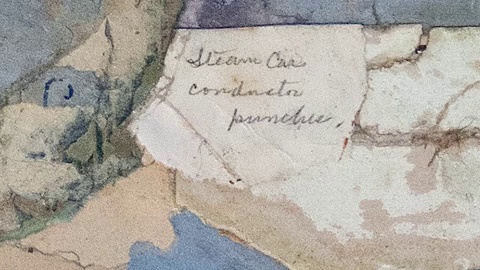 Steam Car
conductor
punches.